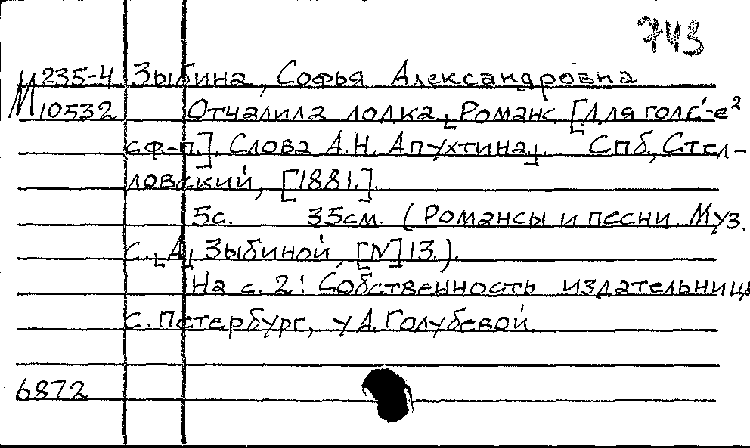 743
М 235-4 Зыбина, Софья Александровна
10532 Отчалила лодка. Романс [Для голоса
с ф-п.]. Слова А.Н. Апухтина. Спб, Стел-
ловский, [1881.]
5с. 35см. (Романсы и песни. Муз.
С. [А] Зыбиной, [N] 13.).
На с. 2: Собственность издательниц
С. Петербург, у А. Голубевой.
6872